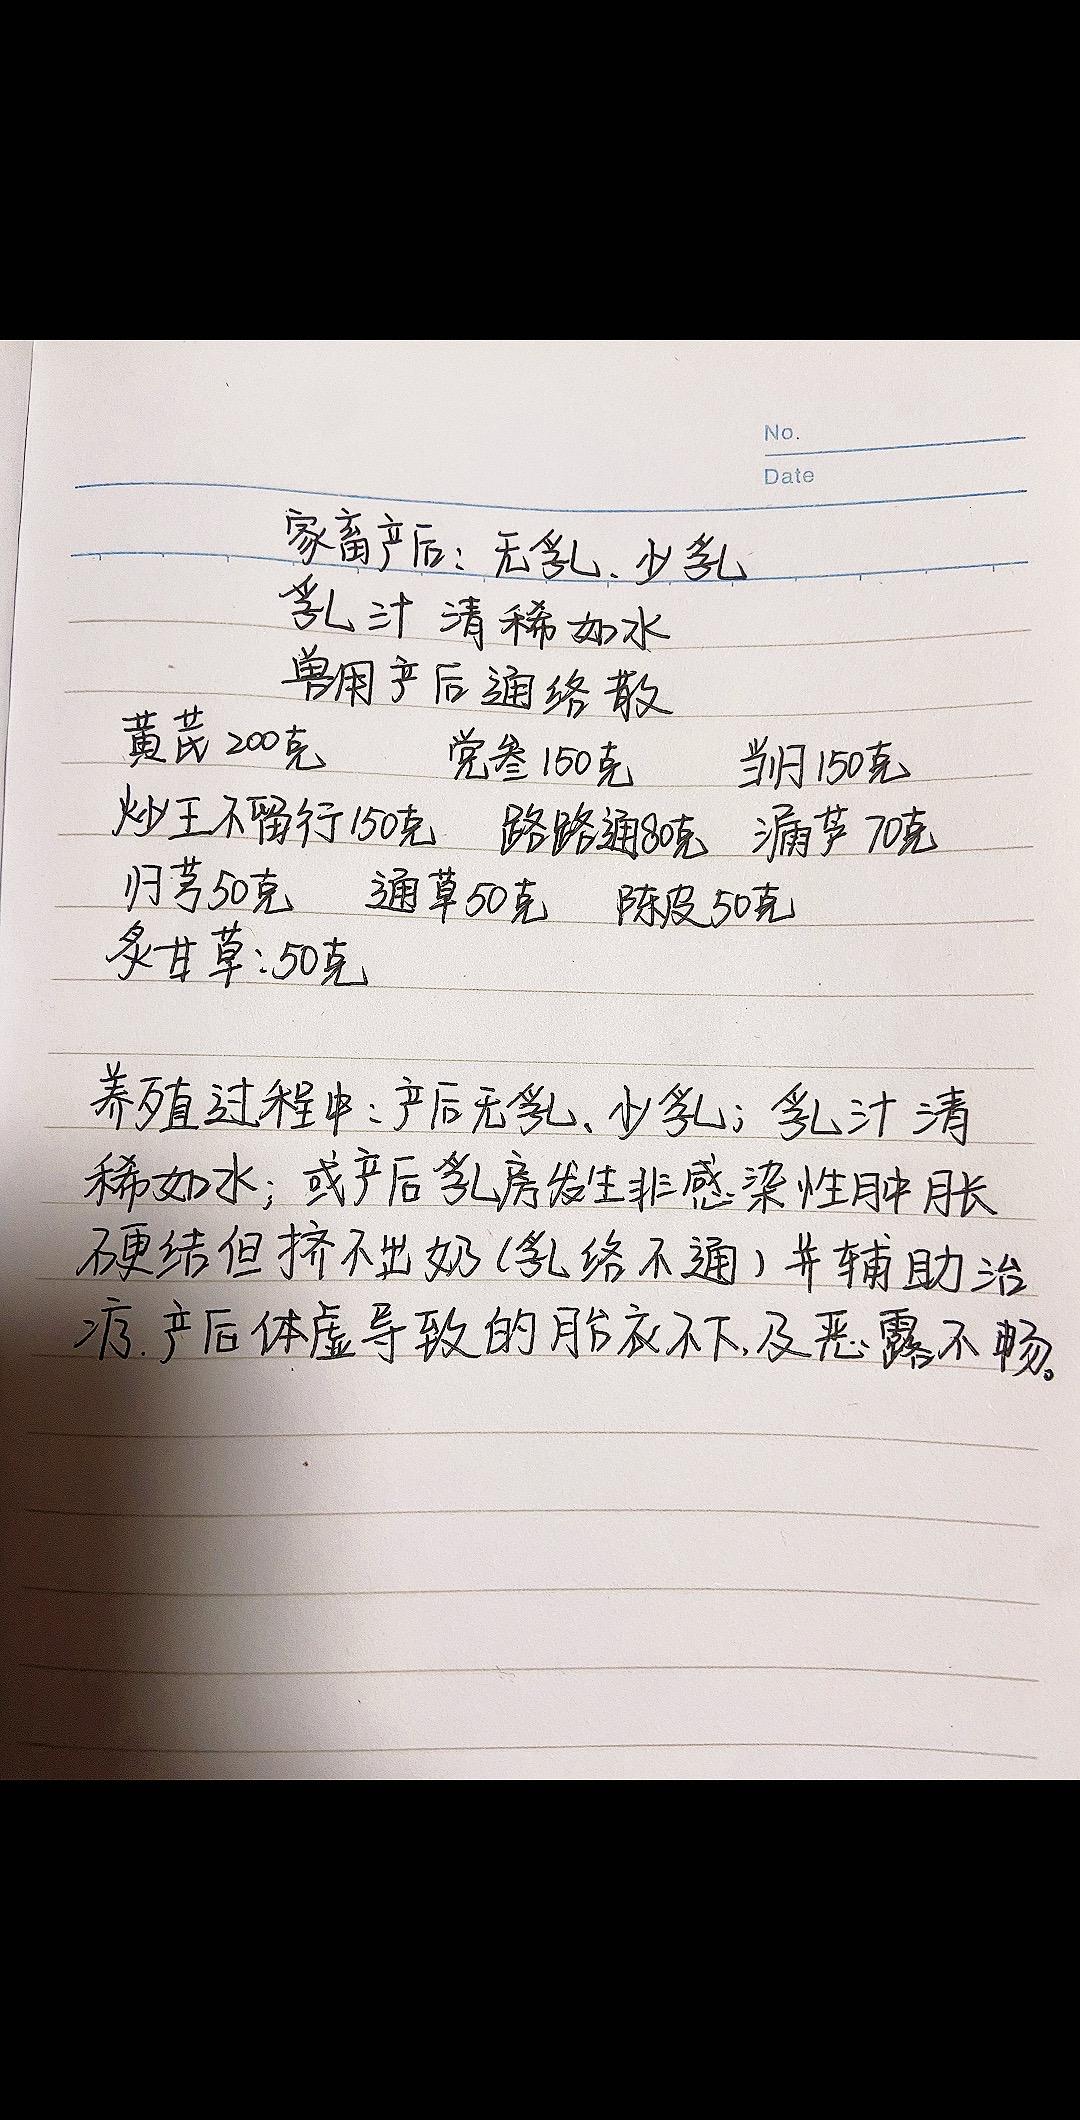 No.
Date
家畜产后：无乳、少乳
乳汁 清稀如水
兽用产后通络散
黄芪200克 党参150克 当归150克
炒王不留行150克 路路通80克 漏芦70克
归芎50克 通草50克 陈皮50克
炙甘草：50克
养殖过程中：产后无乳、少乳；乳汁清
稀如水；或产后乳房发生非感染性肿胀
硬结但挤不出奶（乳络不通）并辅助治
疗.产后体虚导致的胎衣不下,及恶露不畅。